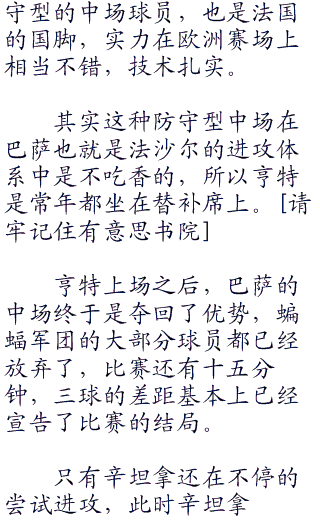 守型的中场球员，也是法国
的国脚，实力在欧洲赛场上
相当不错，技术扎实。
其实这种防守型中场在
巴萨也就是法沙尔的进攻体
系中是不吃香的，所以亨特
是常年都坐在替补席上。[请
牢记住有意思书院]
亨特上场之后，巴萨的
中场终于是夺回了优势，蝙
蝠军团的大部分球员都已经
放弃了，比赛还有十五分
钟，三球的差距基本上已经
宣告了比赛的结局。
只有辛坦拿还在不停的
尝试进攻，此时辛坦拿